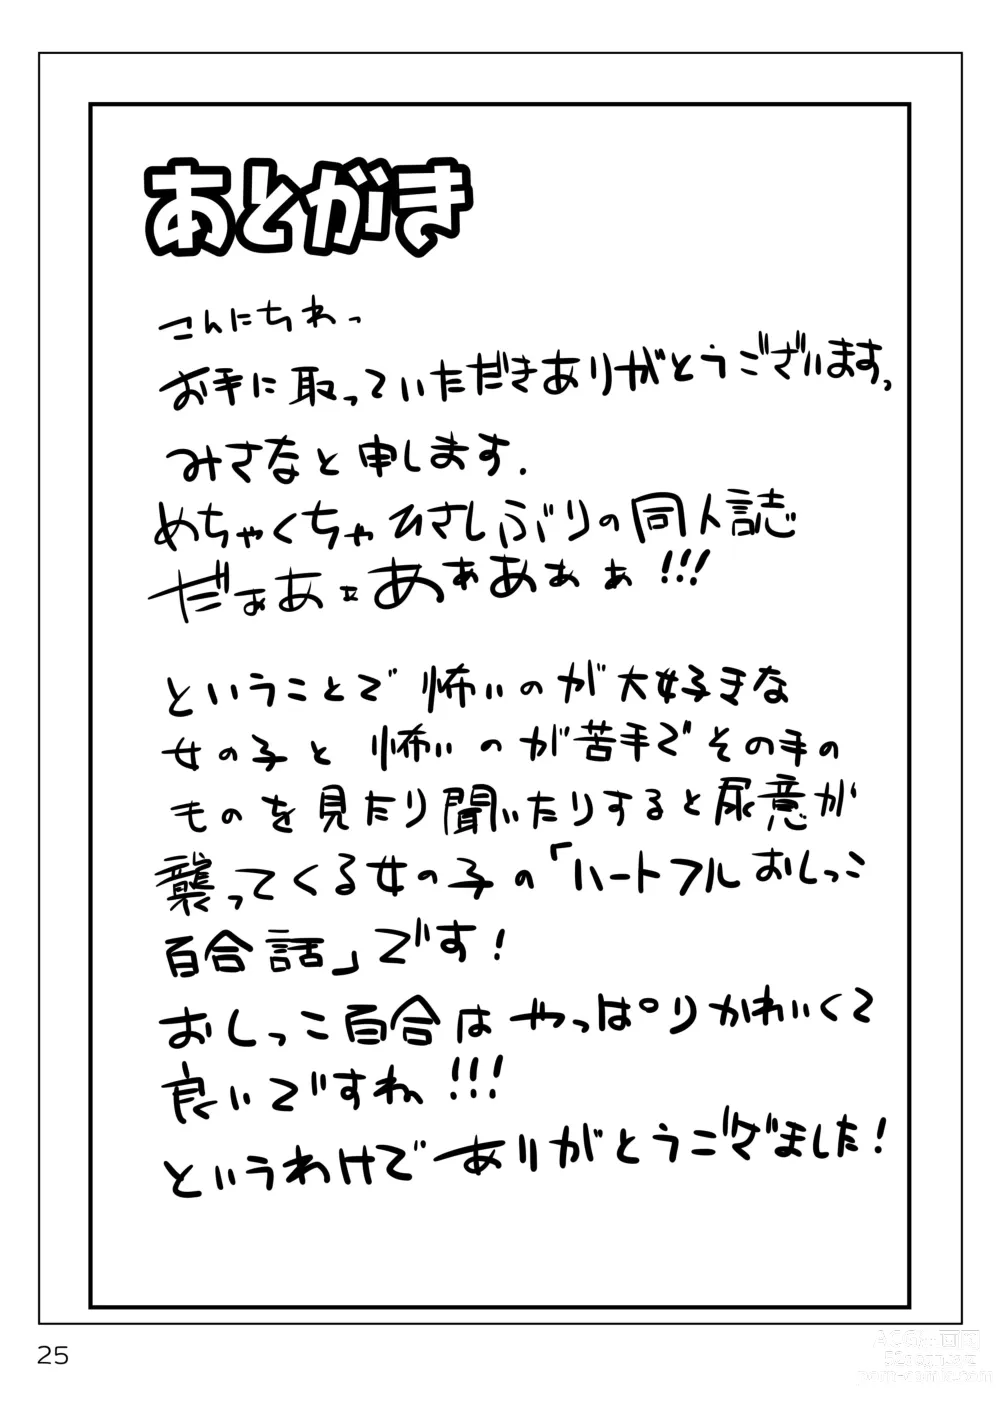 あとがき
こんにちわっ
お手に取っていただきありがとうございます、
みさなと申します.
めちゃくちゃひさしぶりの同人誌
だぁあェあぁあぁぁ!!!
ということで怖いのが大好きな
女の子と怖いのが苦手でその手の
ものを見たり聞いたりすると尿意が
襲ってくる女の子の「ハートフルおしっこ
百合話」です!
おしっこ百合はやっぱりかわいくて
良いですね!!!
というわけでありがとうございました!
25